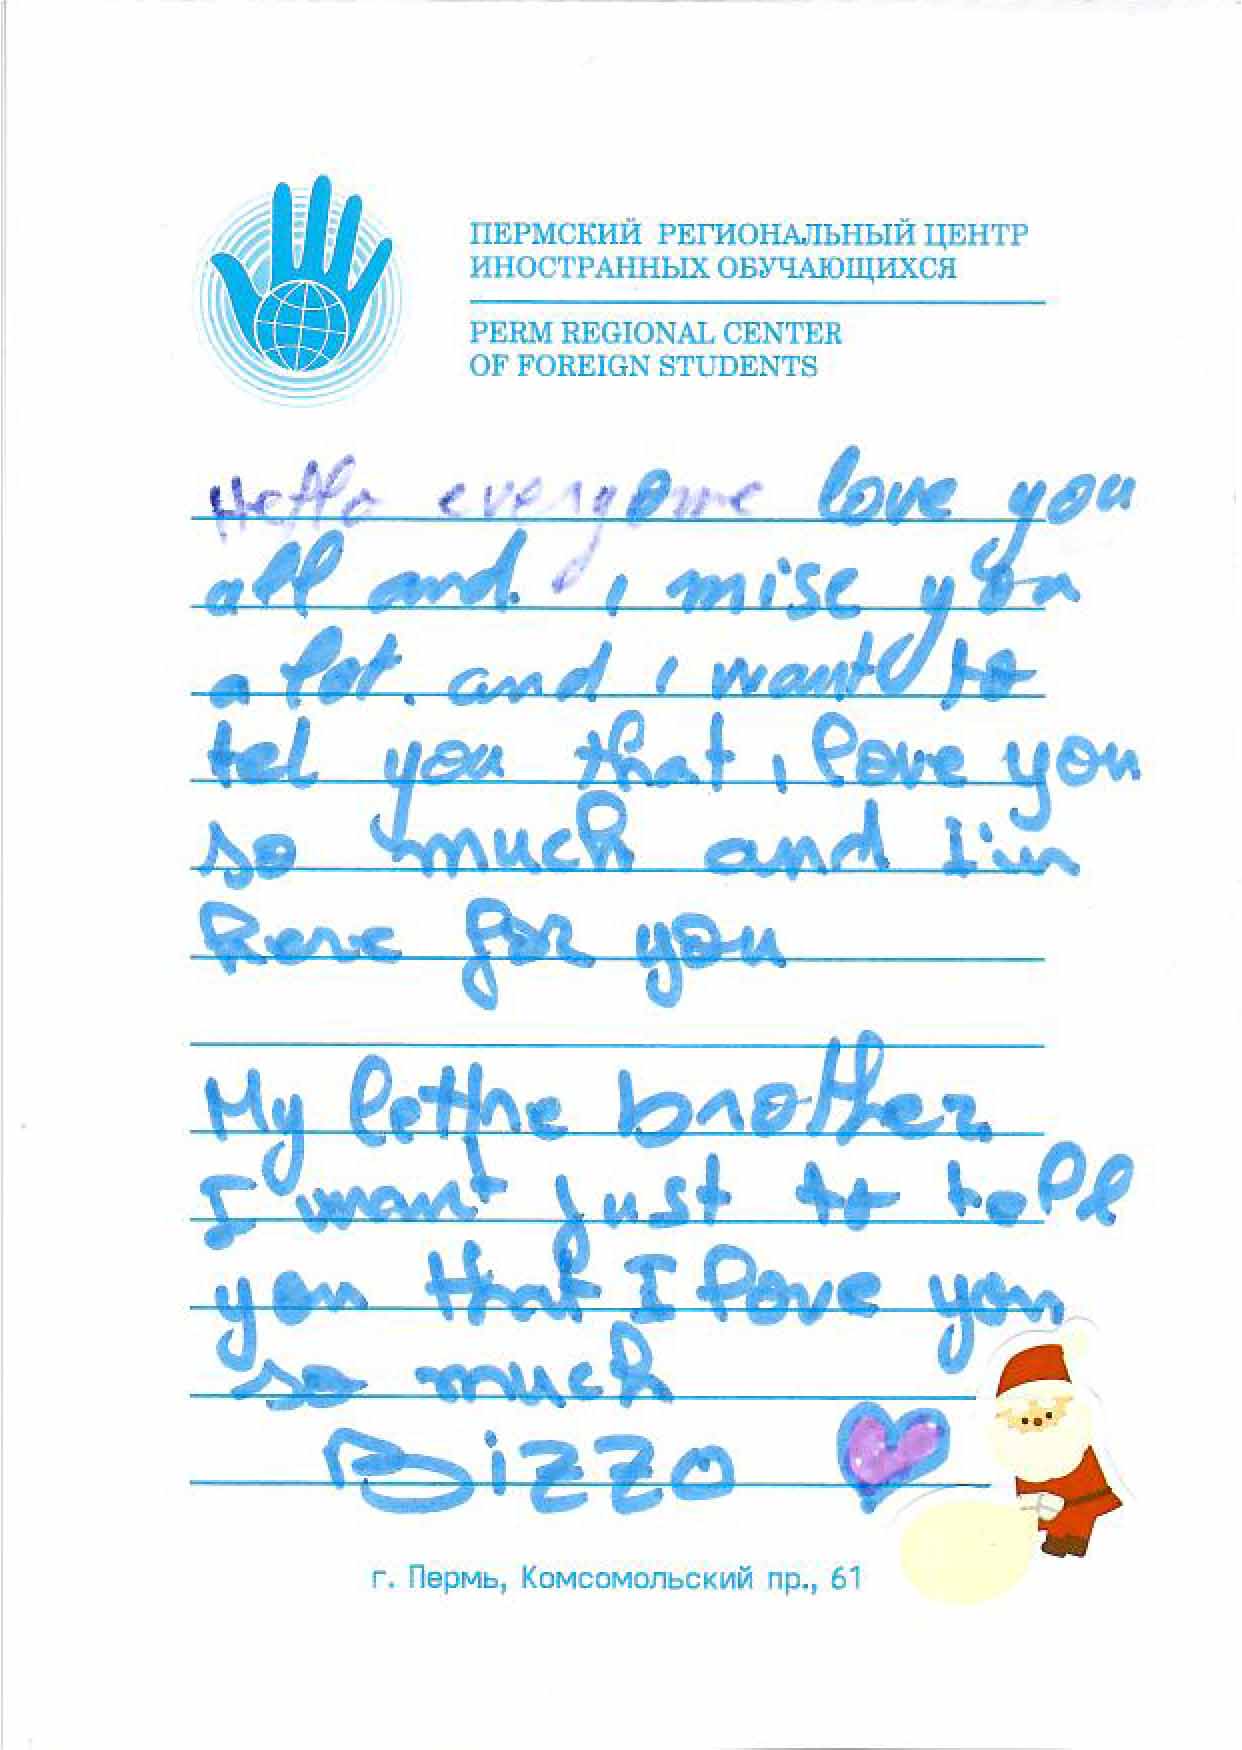 ПЕРМСКИЙ РЕГИОНАЛЬНЫЙ ЦЕНТР
ИНОСТРАННЫХ ОБУЧАЮЩИХСЯ
PERM REGIONAL CENTER
OF FOREIGN STUDENTS
Hello everyone love you
all and i mise you
a lot. and i want to
tel you that i love you
so much and I'm
here for you
My brother
I want just to tell
you that I love you
so much
Bizzo
г. Пермь, Комсомольский пр., 61